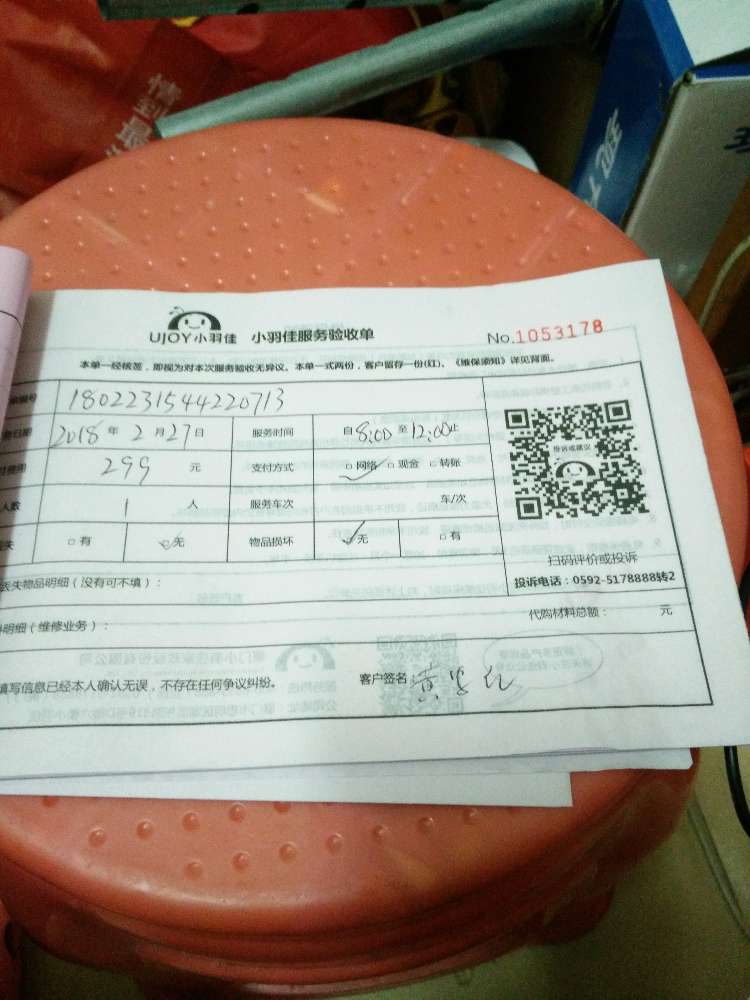 情到最
UJOY小羽佳 小羽佳服务验收单 No.1053178
本单一经核签，即视为对本次服务验收无异议。本单一式两份，客户留存一份(红)。《维保须知》详见背面。
单编号 1802231544220713
日期 2018 年 2 月 27 日 服务时间 自 8:00 至 12:00 止
费用 299 元 支付方式 □网络 □现金 □转账
人数 1 人 服务车次 车/次
失 □有 □无 物品损坏 □无 □有
投诉或建议
扫码评价或投诉
投诉电话：0592-5178888转2
丢失物品明细（没有可不填）：
代购材料总额： 元
明细（维修业务）：
填写信息已经本人确认无误，不存在任何争议纠纷。 客户签名